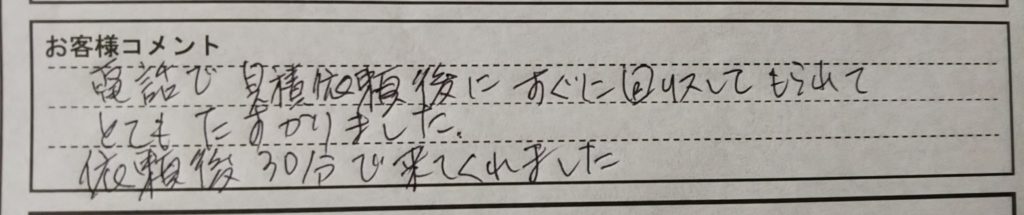 お客様コメント
電話で見積依頼後にすぐに回収してもられて
とてもたすかりました。
依頼後30分で来てくれました